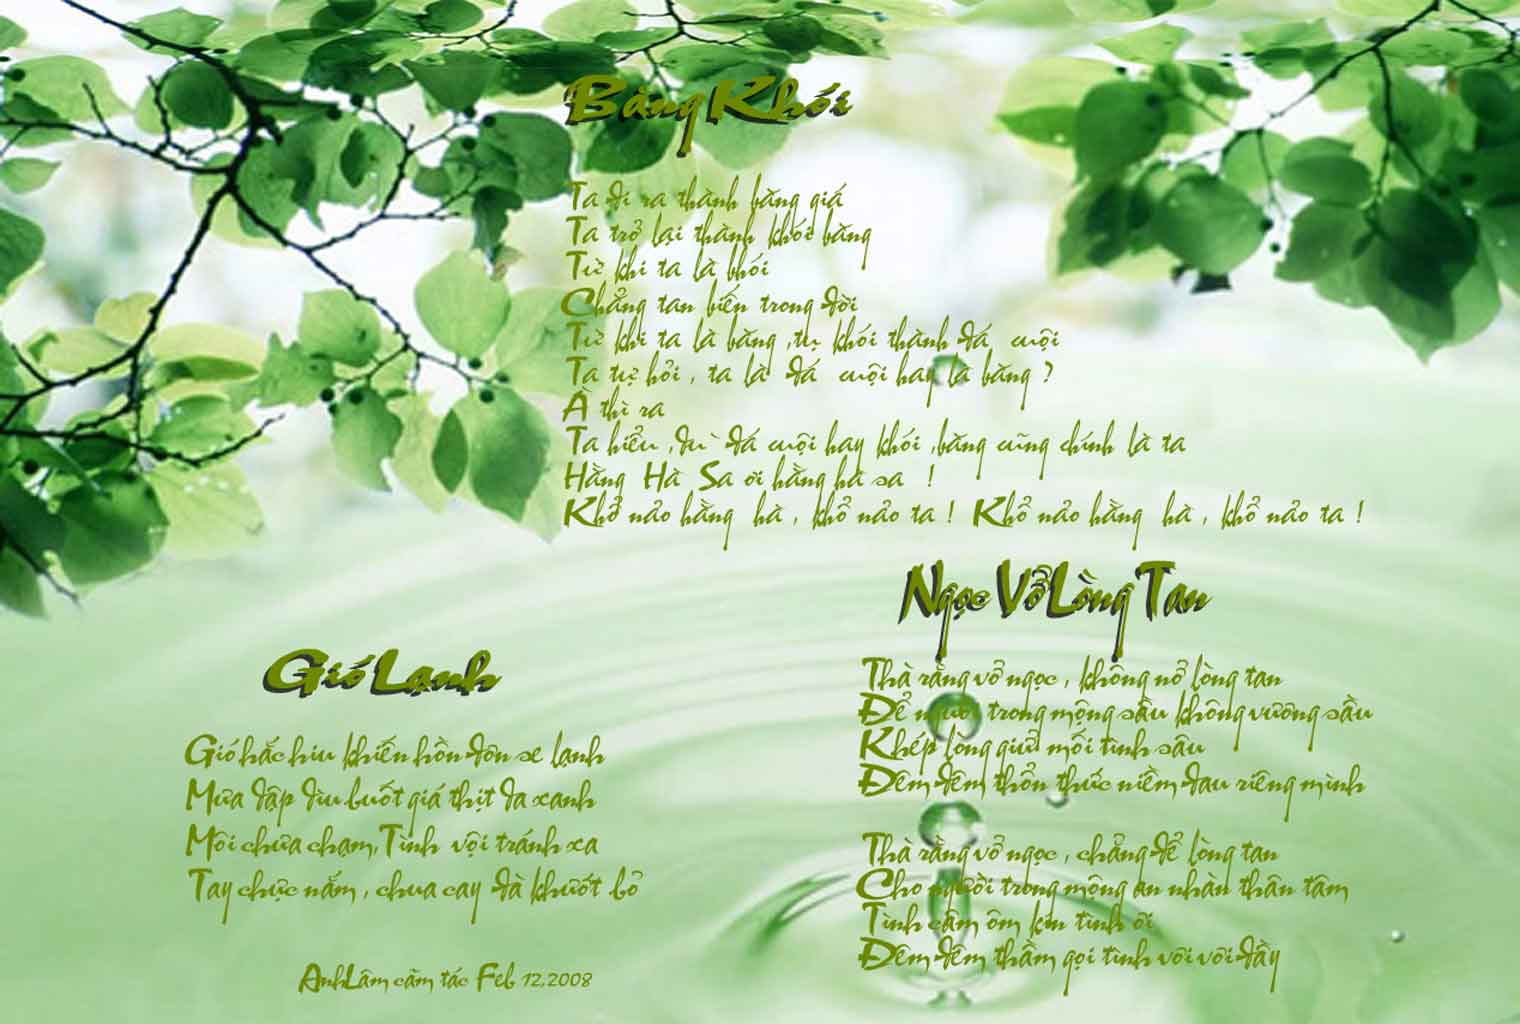 Bàng Khói
Ta đi ra thành bằng giá
Ta trở lại thành khói bằng
Từ khi ta là bhói
Chẳng tan biến trong đời
Từ khi ta là bằng ,tự khói thành đá cuội
Ta tự hỏi , ta là đá cuội hay là bằng ?
À thì ra
Ta hiểu ,dù đá cuội hay khói ,bằng cũng chính là ta
Hằng Hà Sa ơi hằng hà sa !
Khổ não hằng hà , khổ nảo ta ! Khổ não hằng hà , khổ nảo ta !
Ngọc Vở Lòng Tan
Thà rằng vở ngọc , không nở lòng tan
Để người trong mộng sầu không vương sầu
Khép lòng giử mối tình sâu
Đêm đêm thổn thức niềm đau riêng mình
Thà rằng vở ngọc , chẳng để lòng tan
Cho người trong mộng an nhàn thân tâm
Tình câm ôm kín tình ôi
Đêm đêm thầm gọi tình vơi vơi đầy
Gió Lạnh
Gió hắc hiu khiến hồn đơn se lạnh
Mưa dập dìu buốt giá thịt da xanh
Môi chưa chạm,Tình vội tránh xa
Tay chực nắm , chưa cay đà khướt bỏ
AnhLâm cãm tác Feb 12,2008